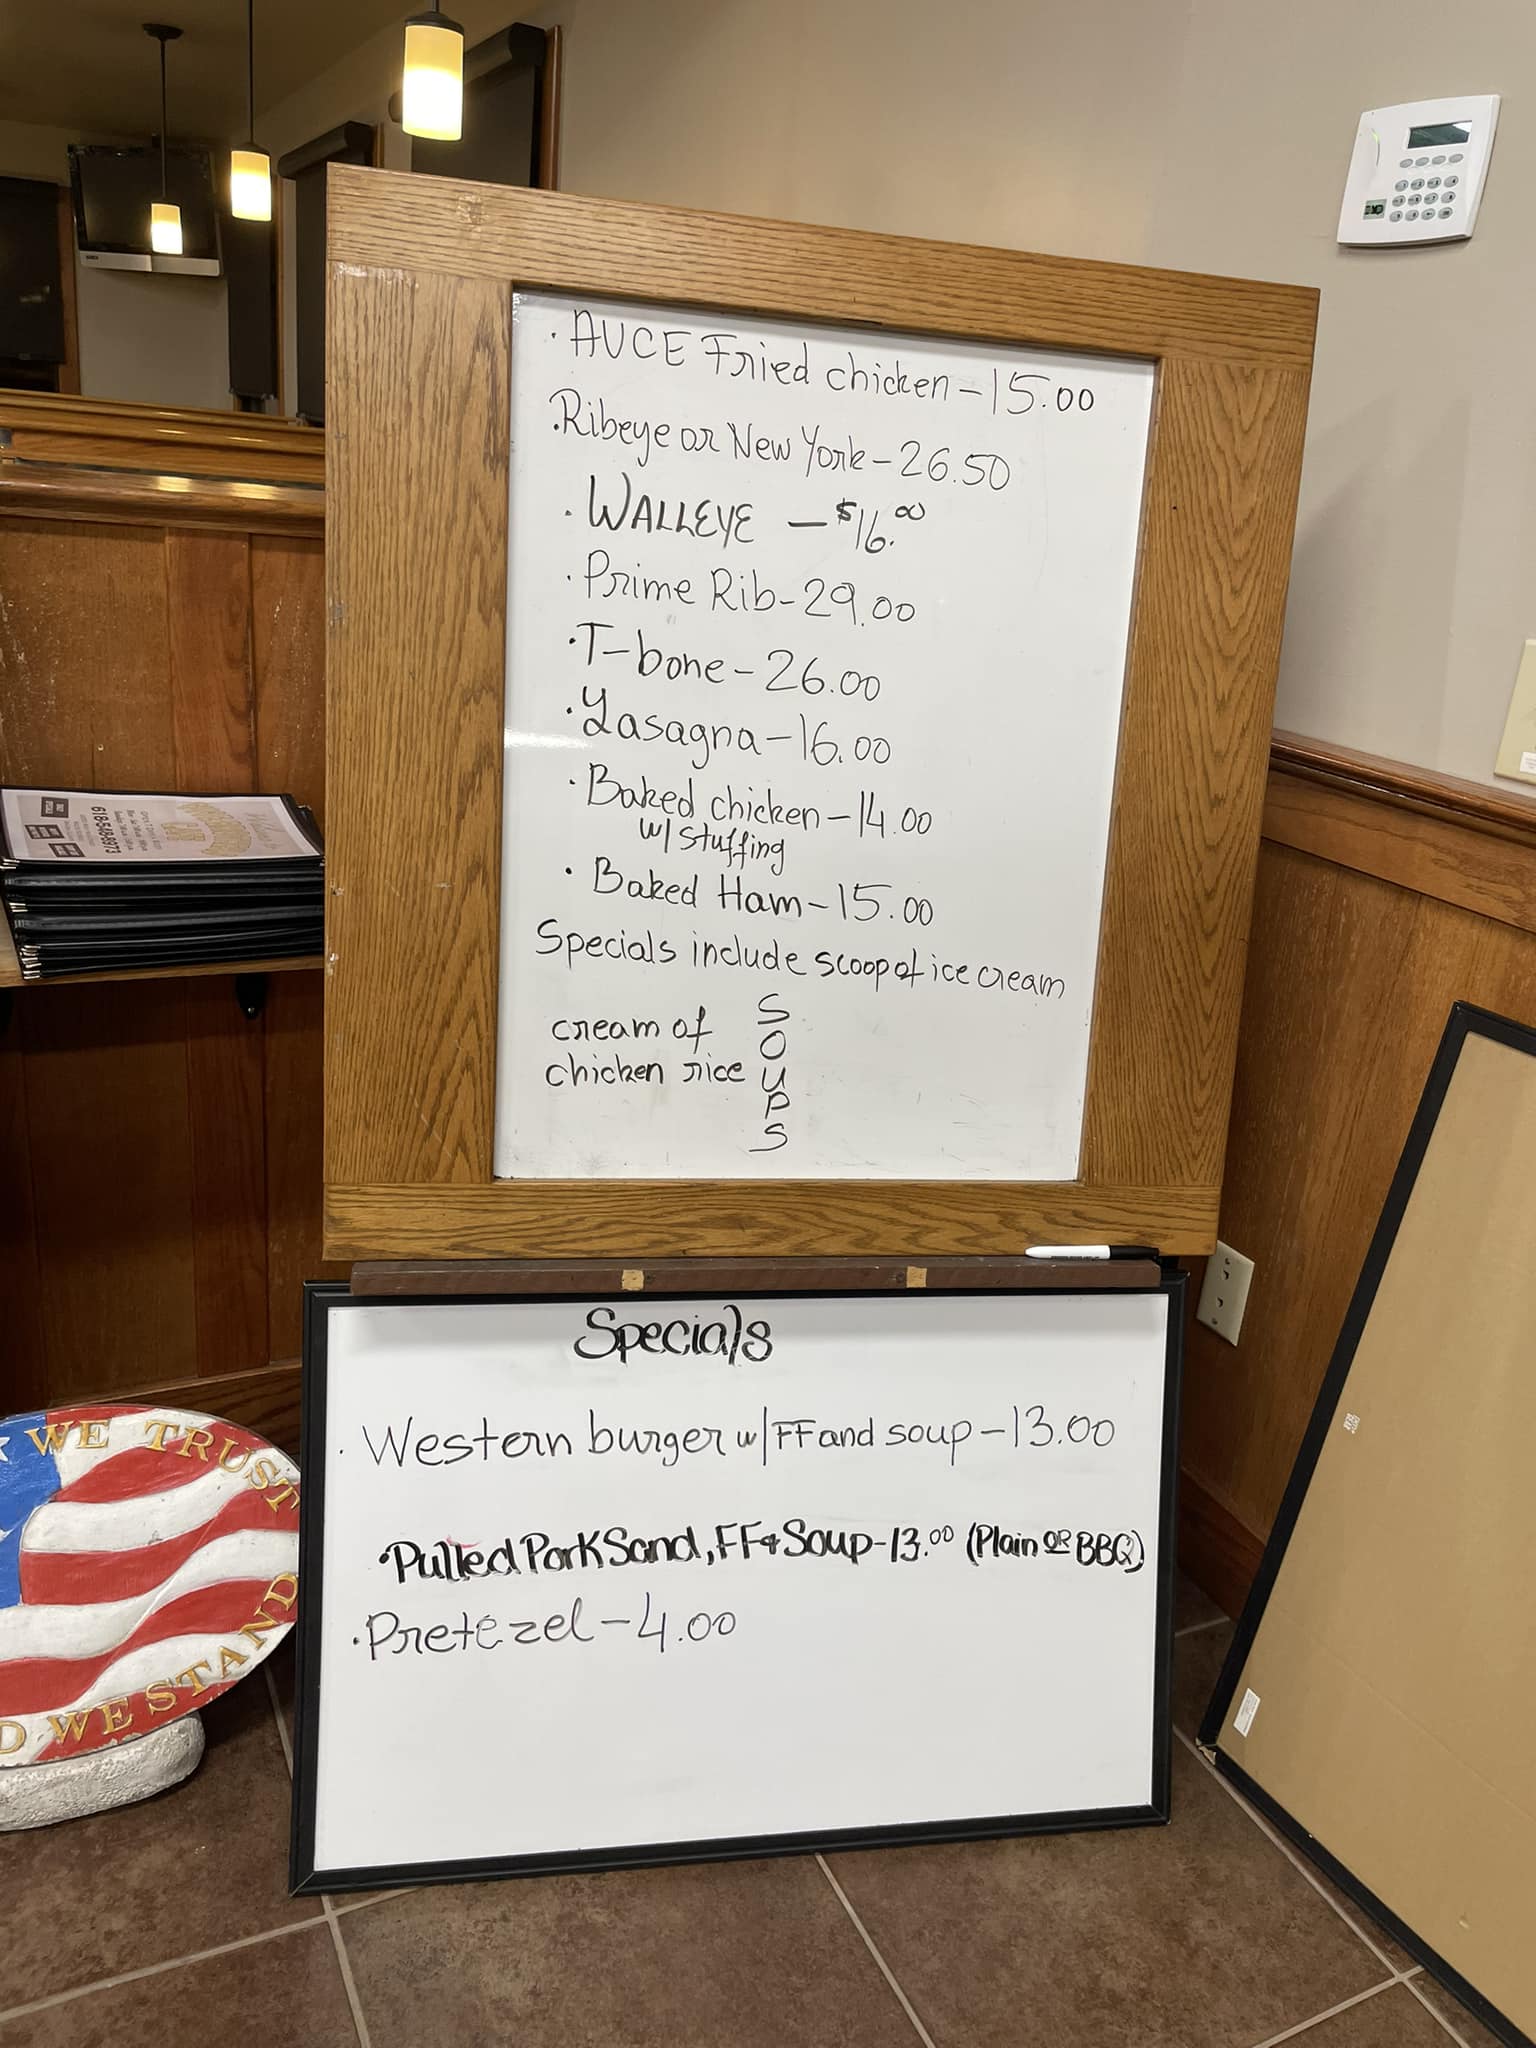 · AUCE Fried chicken - 15.00
· Ribeye or New York - 26.50
· WALLEYE - $16.00
· Prime Rib - 29.00
· T-bone - 26.00
· Lasagna - 16.00
· Baked chicken - 14.00
w/ stuffing
· Baked Ham - 15.00
Specials include scoop of ice cream
cream of
chicken rice
S
O
U
P
S
Specials
· Western burger w/ FF and soup - 13.00
· Pulled Pork Sand, FF & Soup - 13.00 (Plain OR BBQ)
· Pretezel - 4.00
WE TRUST
D WE STAND
618-548-8973